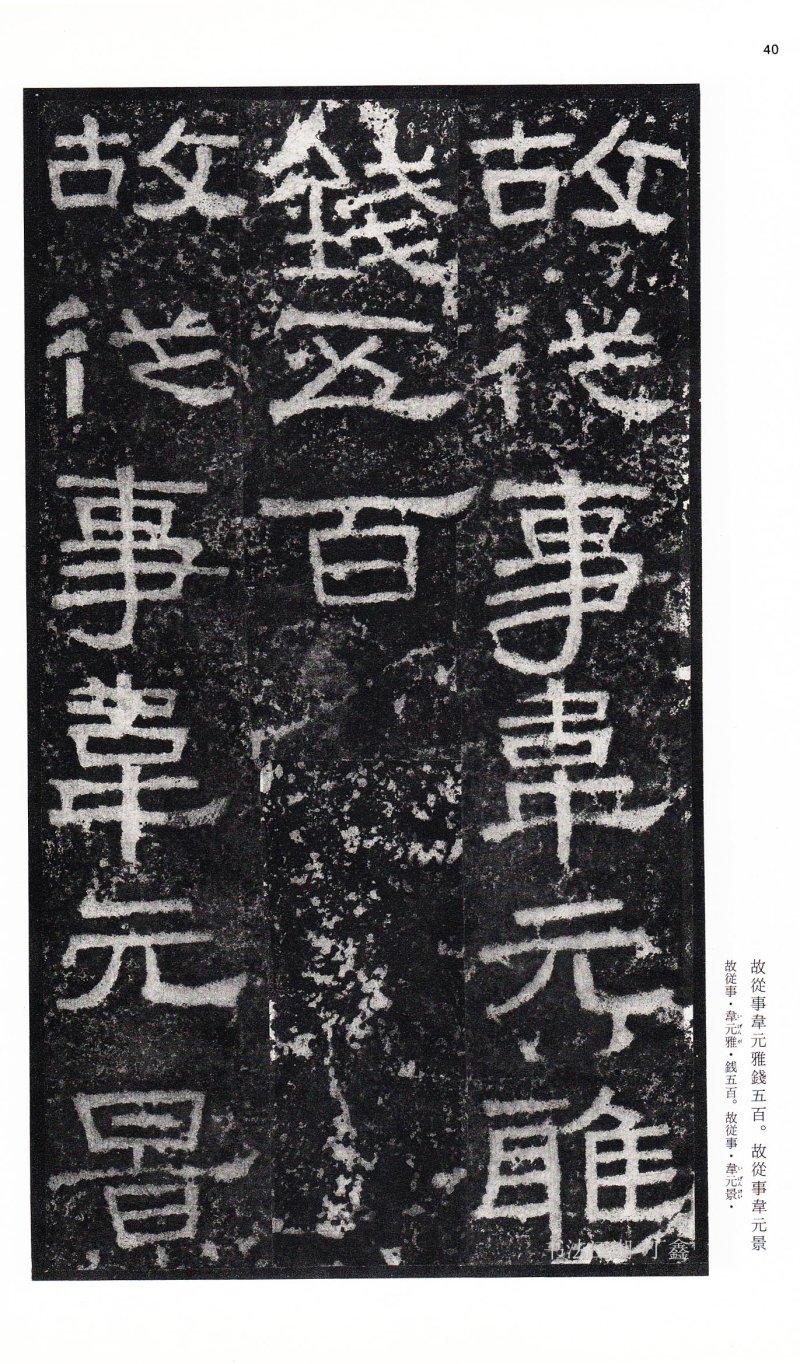 40
故從事韋元雅
錢五百
故從事韋元景
故從事韋元雅錢五百。故從事韋元景
故従事・韋元雅・銭五百。故従事・韋元景・